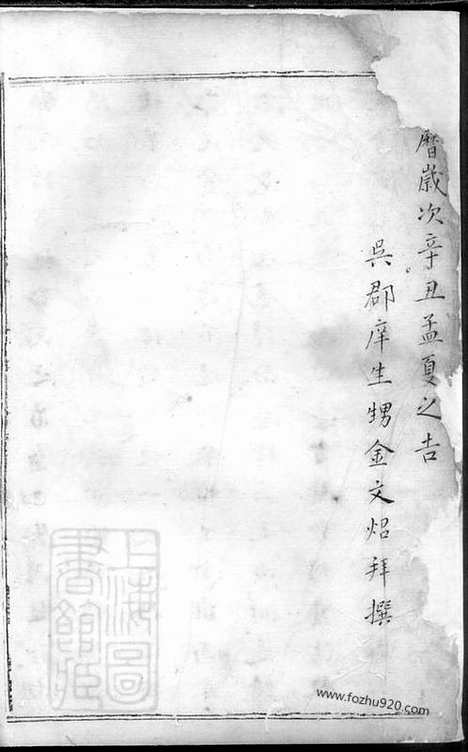 曆歲次辛丑孟夏之吉
吳郡庠生甥金文炤拜撰
上海圖書館藏
www.fozhu920.com